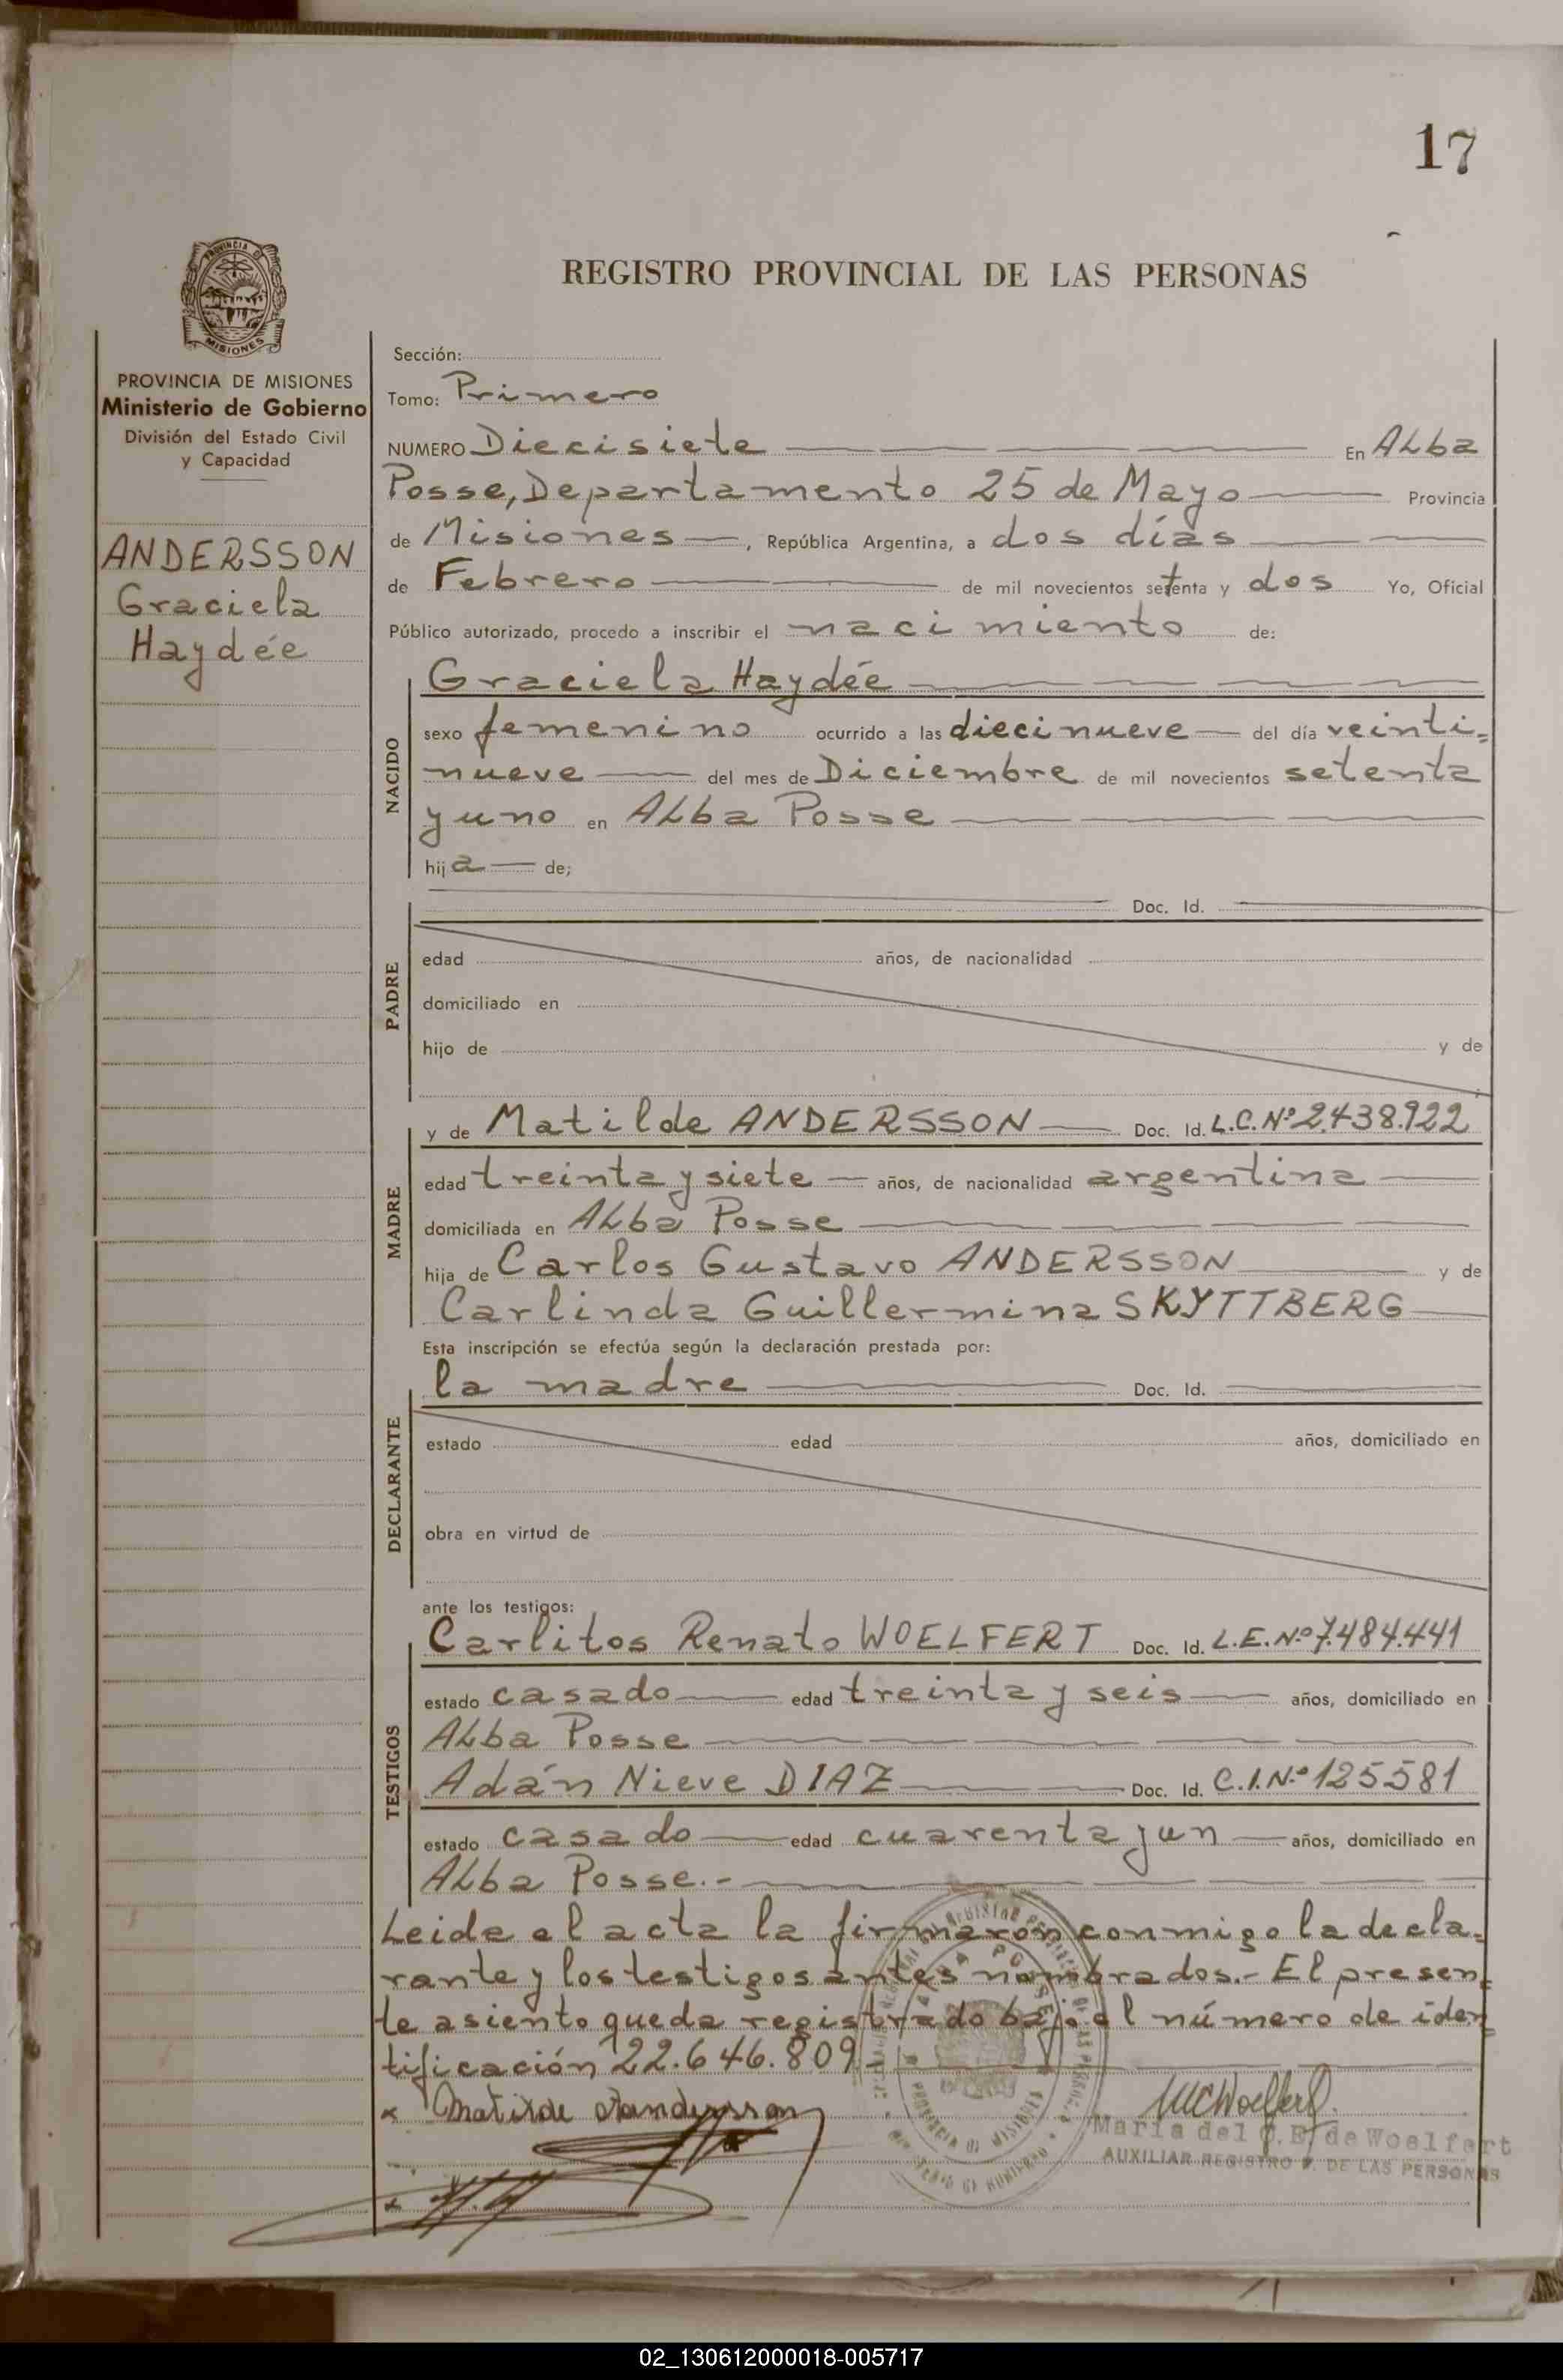 17
PROVINCIA DE
MISIONES
REGISTRO PROVINCIAL DE LAS PERSONAS
PROVINCIA DE MISIONES
Ministerio de Gobierno
División del Estado Civil
y Capacidad
ANDERSSON
Graciela
Haydée
Sección:
Tomo: Primero
NUMERO Diecisiete En Alba
Posse, Departamento 25 de Mayo Provincia
de Misiones, República Argentina, a dos días
de Febrero de mil novecientos setenta y dos Yo, Oficial
Público autorizado, procedo a inscribir el nacimiento de:
NACIDO
Graciela Haydée
sexo femenino ocurrido a las diecinueve del día veinti=
nueve del mes de Diciembre de mil novecientos setenta
y uno en Alba Posse
hija de;
PADRE
Doc. Id.
edad años, de nacionalidad
domiciliado en
hijo de y de
MADRE
y de Matilde ANDERSSON Doc. Id. L.C.Nº 2.438.922
edad treinta y siete años, de nacionalidad argentina
domiciliada en Alba Posse
hija de Carlos Gustavo ANDERSSON y de
Carlinda Guillermina SKYTTBERG
Esta inscripción se efectúa según la declaración prestada por:
DECLARANTE
la madre Doc. Id.
estado edad años, domiciliado en
obra en virtud de
ante los testigos:
TESTIGOS
Carlitos Renato WOELFERT Doc. Id. L.E.Nº 7.484.441
estado casado edad treinta y seis años, domiciliado en
Alba Posse
Adán Nieve DIAZ Doc. Id. C.I.Nº 125581
estado casado edad cuarenta y un años, domiciliado en
Alba Posse.-
Leida el acta la firmaron conmigo la decla=
rante y los testigos antes nombrados.- El presen=
te asiento queda registrado bajo el número de iden=
tificación 22.646.809
x Matilde Andersson
MCWoelfert
Maria del C. E. de Woelfert
AUXILIAR REGISTRO P. DE LAS PERSONAS
x
02_130612000018-005717